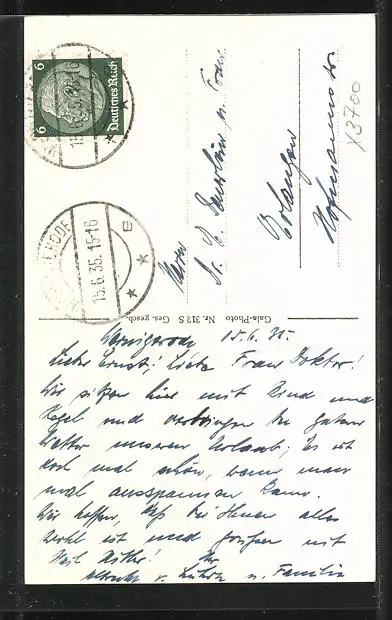 6 6
Deutsches Reich
15.6.35.15-16
15.6.35.15-16
e
Herrn
Dr. E. u. Frau
Erlangen
X3700
Gala-Photo Nr. 312 S Ges. gesch.
Wernigerode 15.6.35.
Lieber Ernst! Liebe Frau Doktor!
Wir sitzen hier mit Kind und
Kegel und verbringen bei gutem
Wetter unseren Urlaub; Es ist
doch mal schön, wenn man
mal ausspannen kann.
Wir hoffen, daß bei Ihnen alles
wohl ist und grüßen mit
Heil Hitler! Ihr
u. Familie